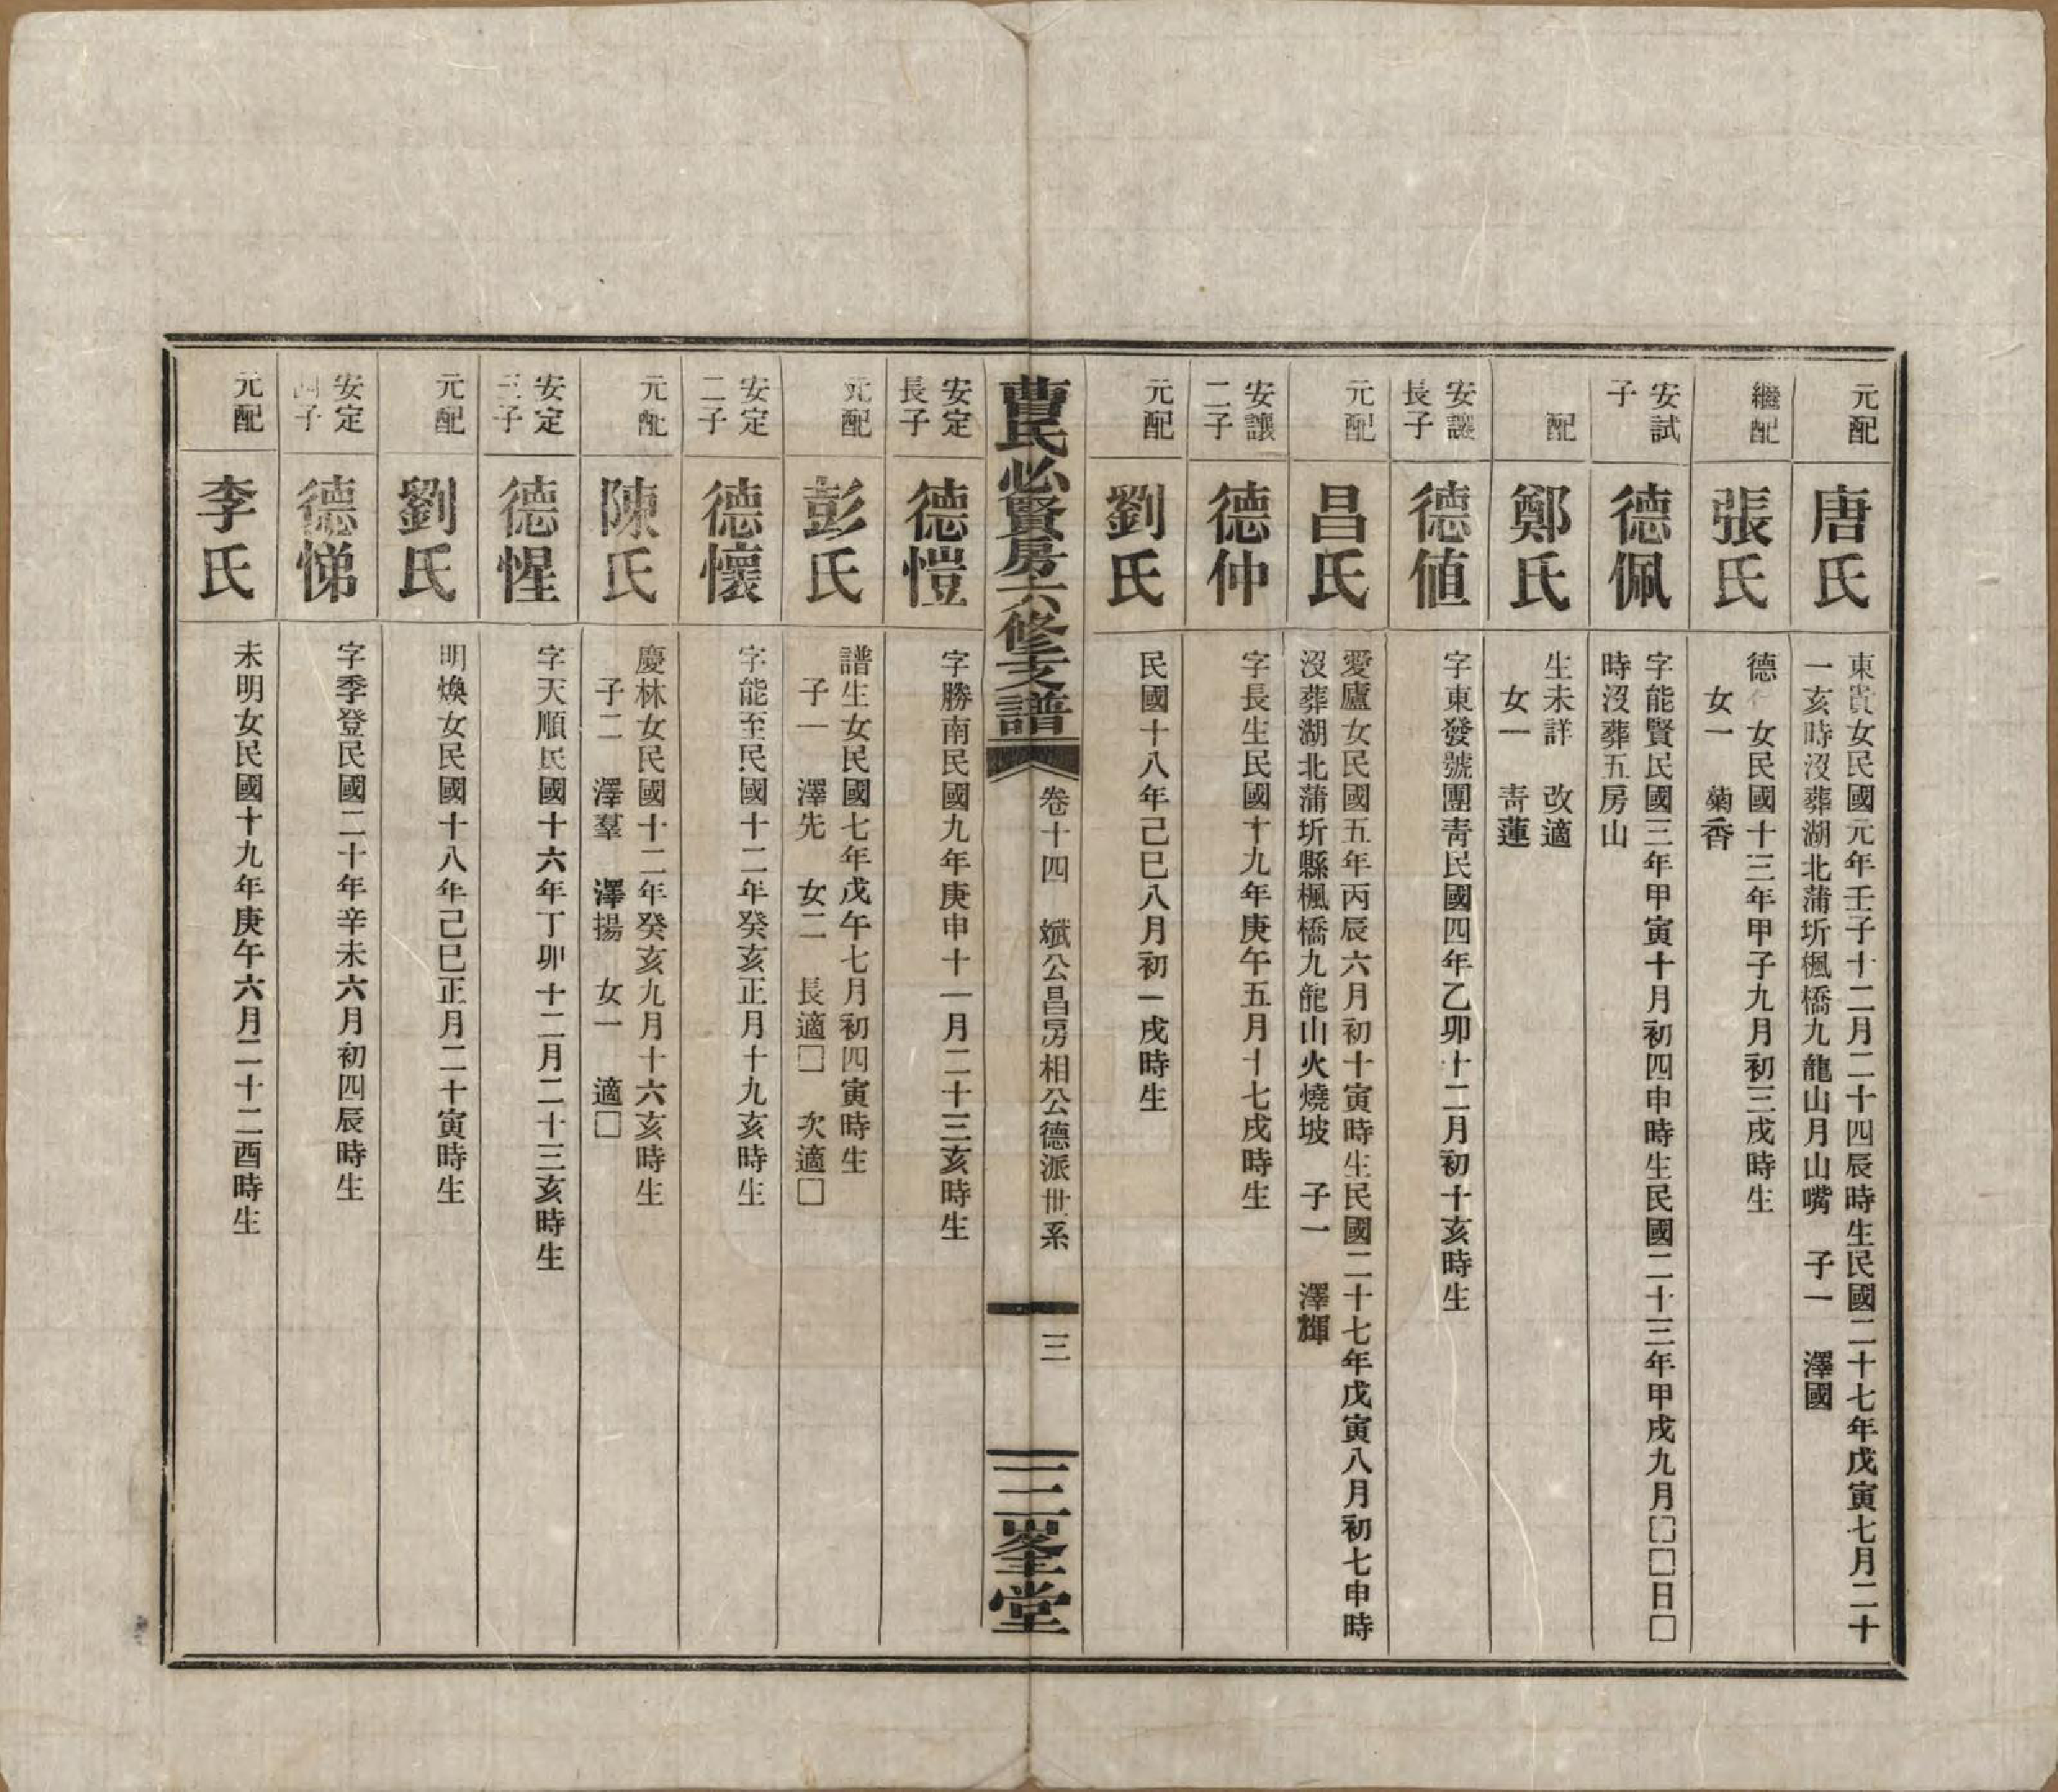 元配
唐氏
東貴女民國元年壬子十二月二十四辰時生民國二十七年戊寅七月二十
一亥時沒葬湖北蒲圻楓橋九龍山月山嘴　子一　澤國
繼配
張氏
德　女民國十三年甲子九月初三戌時生
女一　菊香
安試
子
德佩
字能賢民國三年甲寅十月初四申時生民國二十三年甲戌九月□□日□
時沒葬五房山
配
鄭氏
生未詳　改適
女一　靑蓮
安讓
長子
德值
字東發號團靑民國四年乙卯十二月初十亥時生
元配
昌氏
愛廬女民國五年丙辰六月初十寅時生民國二十七年戊寅八月初七申時
沒葬湖北蒲圻縣楓橋九龍山火燒坡　子一　澤輝
安讓
二子
德仲
字長生民國十九年庚午五月十七戌時生
元配
劉氏
民國十八年己巳八月初一戌時生
曹氏必賢房六修支譜
卷十四　斌公昌房相公德派世系
三
三峯堂
安定
長子
德愷
字勝南民國九年庚申十一月二十三亥時生
元配
彭氏
譜生女民國七年戊午七月初四寅時生
子一　澤先　女二　長適□　次適□
安定
二子
德懷
字能至民國十二年癸亥正月十九亥時生
元配
陳氏
慶林女民國十二年癸亥九月十六亥時生
子二　澤羣　澤揚　女一　適□
安定
三子
德惺
字天順民國十六年丁卯十二月二十三亥時生
元配
劉氏
明煥女民國十八年己巳正月二十寅時生
安定
四子
德悌
字季登民國二十年辛未六月初四辰時生
元配
李氏
未明女民國十九年庚午六月二十二酉時生